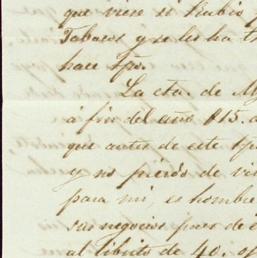 que viese si habia
Tabacos y se les ha
hace tpo.
La cta. de
á fin del año 815.
que antes de este tpo
y no pierdo de
para mi, es hombre
sus negocios pues de
al libito de 40.